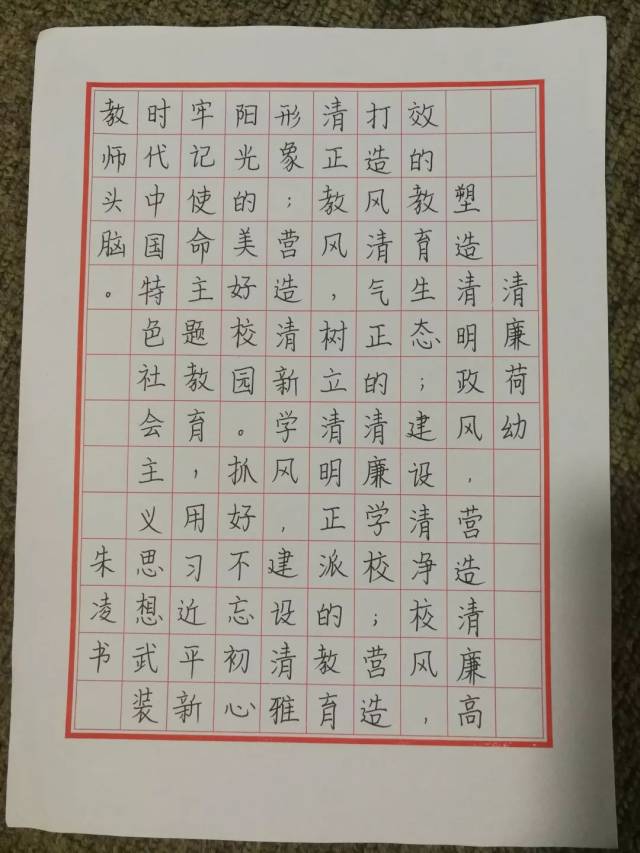 清廉荷幼
塑造清明政风，营造清廉高
效的教育生态；建设清净校风，
打造风清气正的清廉学校；营造
清正教风，树立清明正派的教育
形象；营造清新学风，建设清雅
阳光的美好校园。抓好不忘初心
牢记使命主题教育，用习近平新
时代中国特色社会主义思想武装
教师头脑。 朱凌书